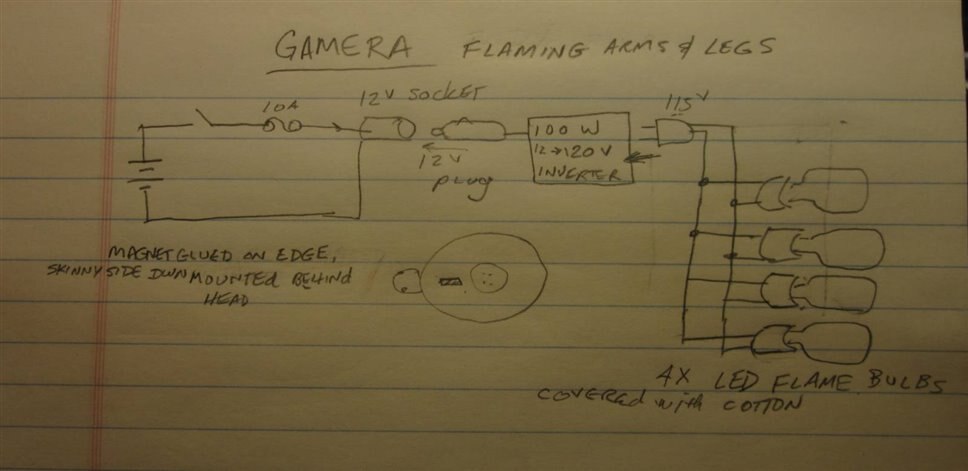 GAMERA FLAMING ARMS & LEGS
10A
12V SOCKET
115V
12V
PLUG
100 W
12→120 V
INVERTER
MAGNET GLUED ON EDGE,
SKINNY SIDE DWN MOUNTED BEHIND
HEAD
4X LED FLAME BULBS
COVERED with COTTON